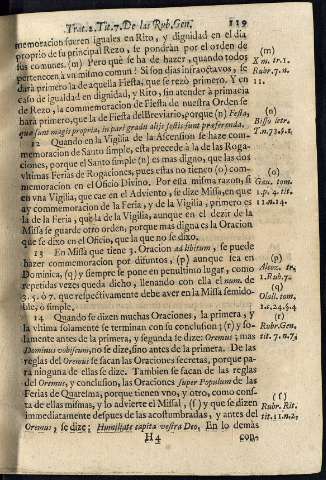 Trat.2. Tit.7. De las Rub. Gen. 119
memoracion fueren iguales en Rito, y dignidad en el dia
proprio de su principal Rezo, se pondràn por el orden de
sus comunes. (m) Pero què se ha de hazer, quando todos
pertenecen à vn mismo comun? Si son dias infraoctavos, se
darà primero la de aquella Fiesta, que se rezò primero. Y en
caso de igualdad en dignidad, y Rito, sin atender à primacia
de Rezo, la commemoracion de Fiesta de nuestra Orden se
harà primero, que la de Fiesta del Breviario, porque (n) Festa,
quæ sunt magis propria, in pari gradu alijs festis sunt præferenda.
12 Quando en la Vigilia de la Ascension se haze com-
memoracion de Santo simple, esta precede à la de las Roga-
ciones, porque el Santo simple (n) es mas digno, que las dos
vltimas Ferias de Rogaciones, pues estas no tienen (o) com-
memoracion en el Oficio Divino. Por esta misma razon, si
en vna Vigilia, que cae en el Adviento, se dize Missa, en que
ay commemoracion de la Feria, y de la Vigilia, primero es
la de la Feria, que la de la Vigilia, aunque en el dezir de la
Missa se guarde otro orden, porque mas digna es la Oracion
que se dixo en el Oficio, que la que no se dixo.
13 En Missa que tiene 3. Oracion ad libitum, se puede
hazer commemoracion por difuntos, (p) aunque sea en
Dominica, (q) y siempre se pone en penultimo lugar, como
repetidas vezes queda dicho, llenando con ella el num. de
3. 5. ò 7. que respectivamente debe aver en la Missa semido-
ble, ò simple.
14 Quando se dizen muchas Oraciones, la primera, y
la vltima solamente se terminan con su conclusion; (r) y so-
lamente antes de la primera, y segunda se dize: Oremus; mas
Dominus vobiscum, no se dize, sino antes de la primera. De las
reglas del Oremus se sacan las Oraciones secretas, porque pa-
ra ninguna de ellas se dize. Tambien se sacan de las reglas
del Oremus, y conclusion, las Oraciones super Populum de las
Ferias de Quaresma, porque tienen vno, y otro, como cons-
ta de ellas mismas, y lo advierte el Missal, (s) y que se dizen
immediatamente despues de las acostumbradas, y antes del
Oremus, se dize: Humiliate capita vestra Deo. En lo demàs
H4 con-
(m)
X m. tr.1.
Rubr.7. n.
11.
(n)
T.n.73.§.1.
(o)
Gav. tom.
1.p.4. tit.
11.n.14.
(p)
1. Rub.7.
(q)
1.c.24.§.4
(r)
Rubr. Gen.
tit.7. n.7.
(s)
Rubr. Rit.
tit.11.n.2.